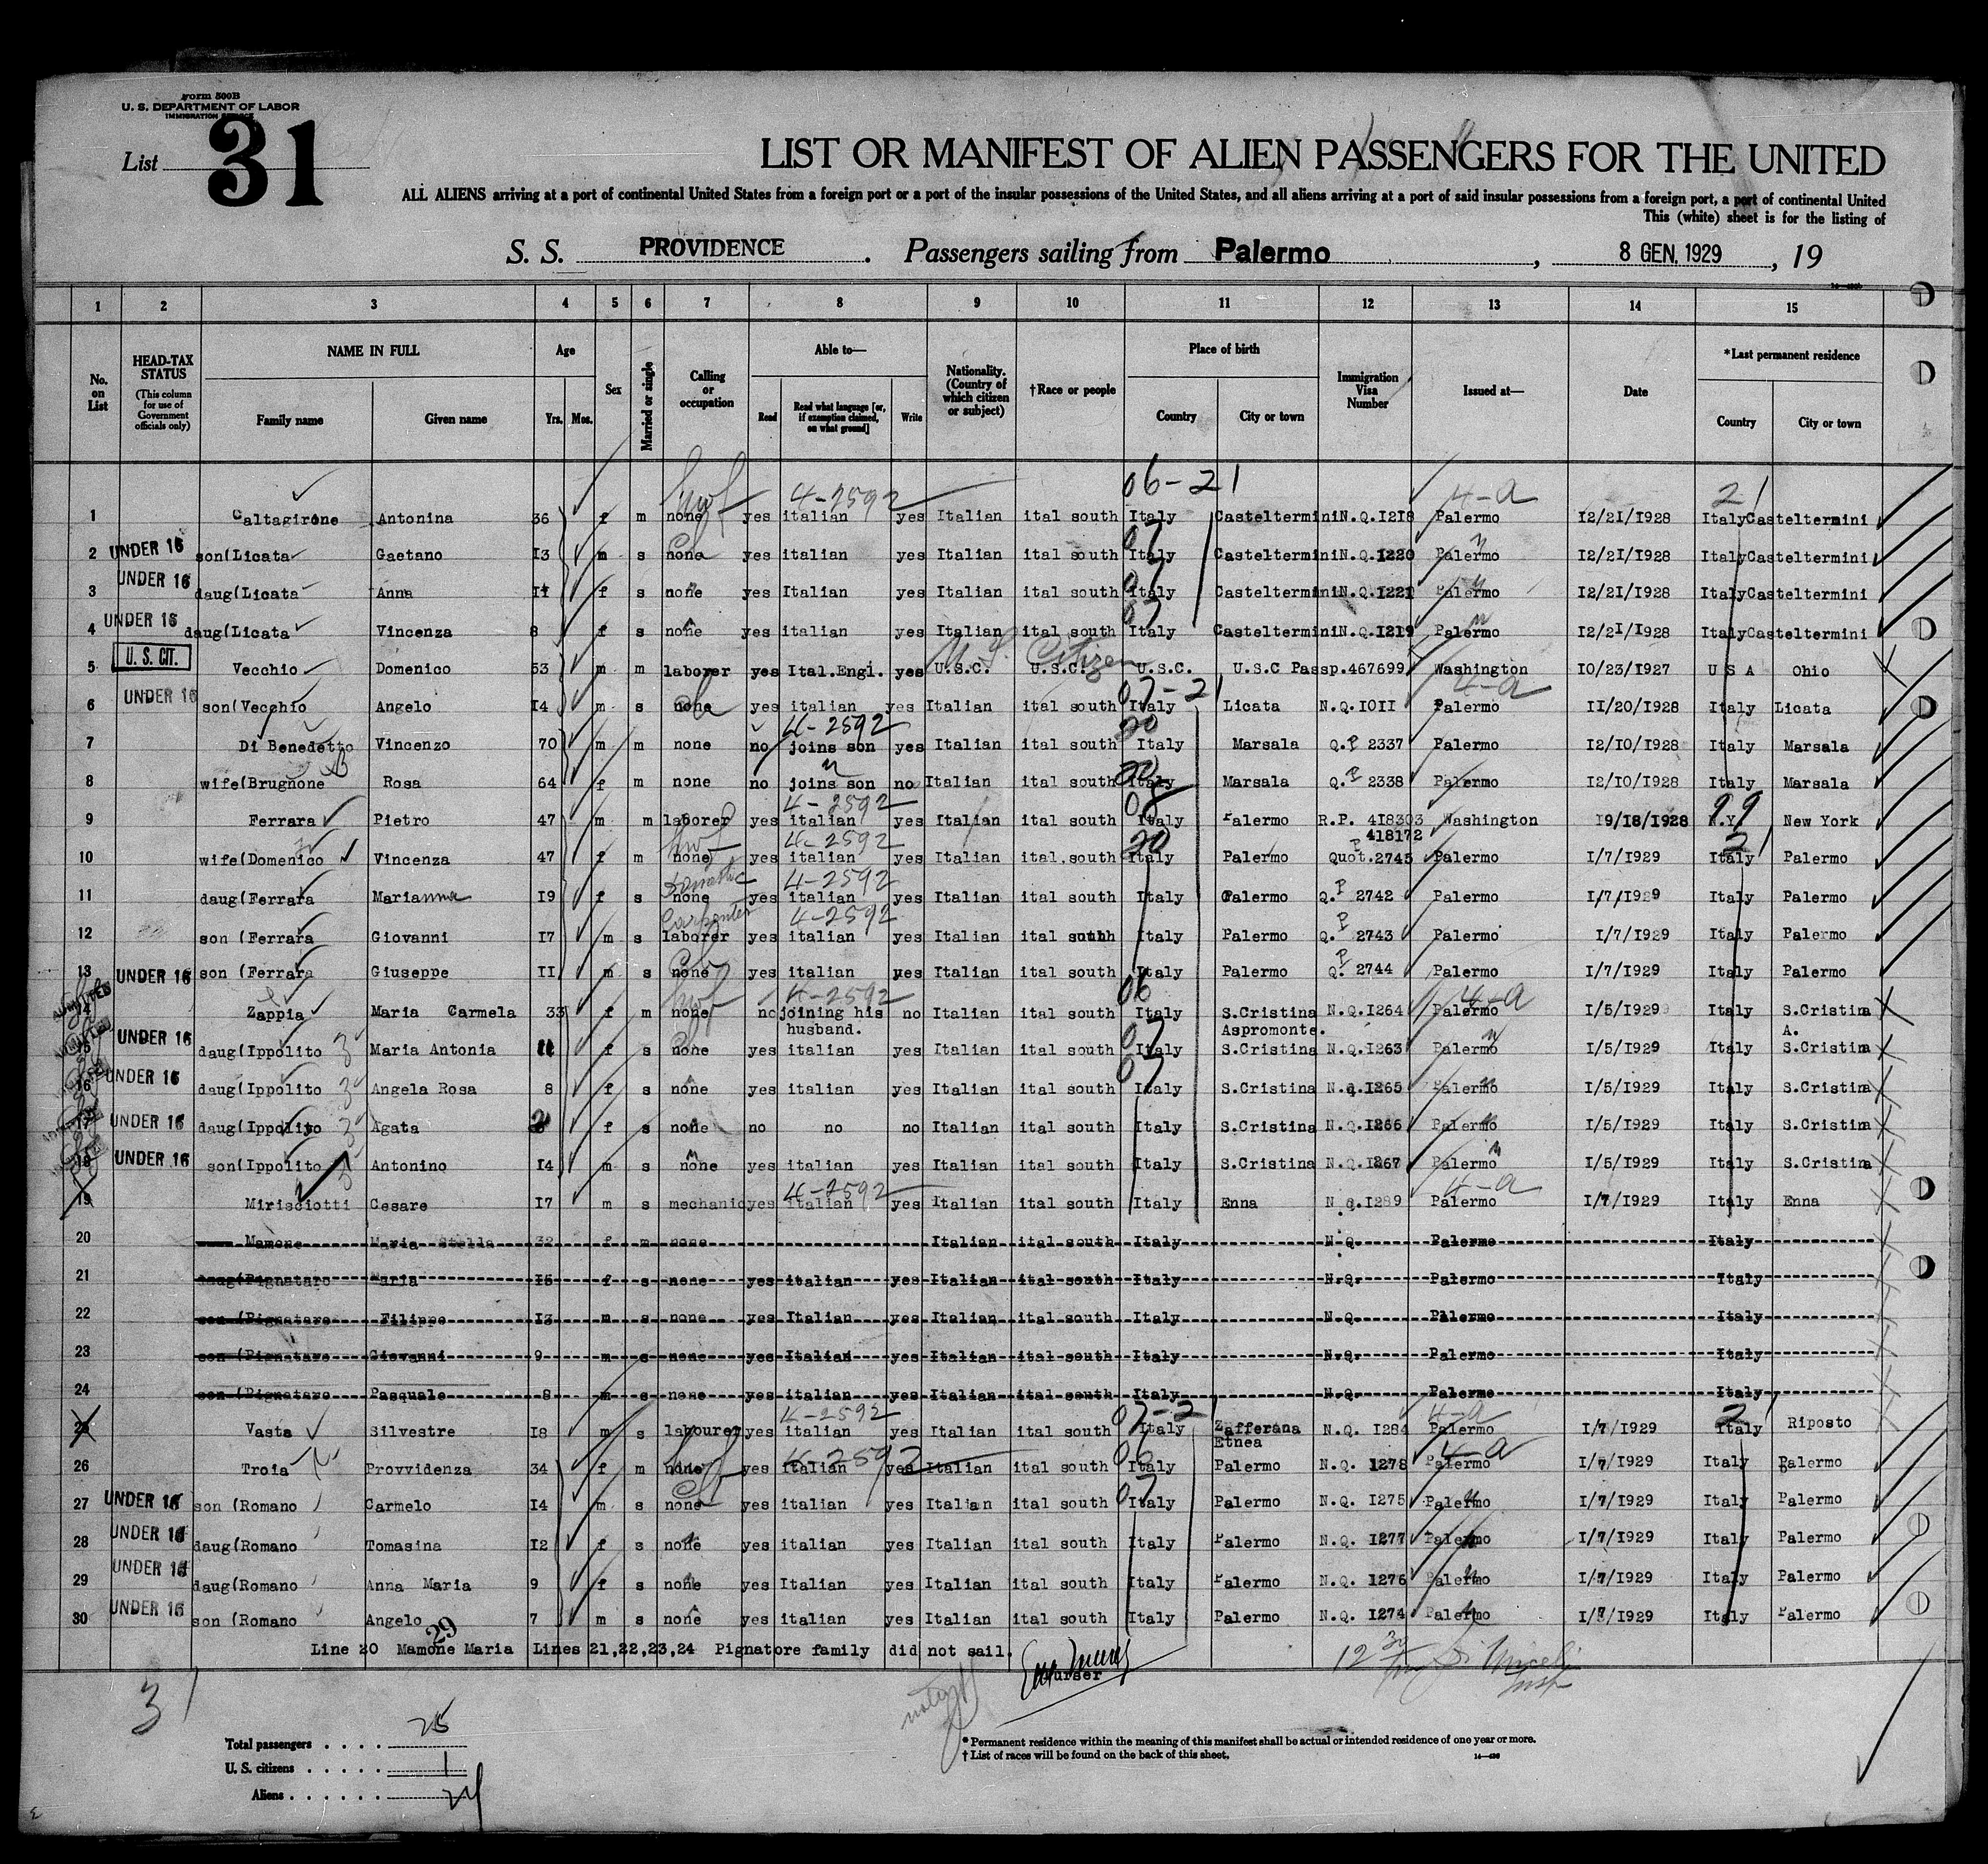 Form 500B
U. S. DEPARTMENT OF LABOR
IMMIGRATION SERVICE
List 31
LIST OR MANIFEST OF ALIEN PASSENGERS FOR THE UNITED
ALL ALIENS arriving at a port of continental United States from a foreign port or a port of the insular possessions of the United States, and all aliens arriving at a port of said insular possessions from a foreign port, a port of continental United
This (white) sheet is for the listing of
S. S. PROVIDENCE. Passengers sailing from Palermo, 8 GEN. 1929, 19
1 2 3 4 5 6 7 8 9 10 11 12 13 14 15
No. on List
HEAD-TAX STATUS (This column for use of Government officials only)
NAME IN FULL Family name Given name
Age Yrs. Mos.
Sex
Married or single
Calling or occupation
Able to— Read Read what language [or, if exemption claimed, on what ground] Write
Nationality. (Country of which citizen or subject)
†Race or people
Place of birth Country City or town
Immigration Visa Number
Issued at—
Date
*Last permanent residence Country City or town
06-21
4-2592 4-a 21
1 Caltagirone Antonina 36 f m none yes italian yes Italian ital south Italy Casteltermini N.Q.1218 Palermo 12/21/1928 Italy Casteltermini
2 UNDER 16 son(Licata Gaetano 13 m s none yes italian yes Italian ital south Italy Casteltermini N.Q.1220 Palermo 12/21/1928 Italy Casteltermini
3 UNDER 16 daug(Licata Anna 11 f s none yes Italian yes Italian ital south Italy Casteltermini N.Q.1221 Palermo 12/21/1928 Italy Casteltermini
4 UNDER 16 daug(Licata Vincenza 8 f s none yes italian yes Italian ital south Italy Casteltermini N.Q.1219 Palermo 12/21/1928 Italy Casteltermini
U. S. Citizen
5 U. S. CIT. Vecchio Domenico 53 m m laborer yes Ital.Engl. yes U.S.C. U.S.C. U.S.C. U.S.C Passp.467699 Washington 10/23/1927 U S A Ohio
07-21 4-a
6 UNDER 16 son(Vecchio Angelo 14 m s none yes italian yes Italian ital south Italy Licata N.Q.1011 Palermo 11/20/1928 Italy Licata
4-2592 20
7 Di Benedetto Vincenzo 70 m m none no joins son yes Italian ital south Italy Marsala Q.P 2337 Palermo 12/10/1928 Italy Marsala
8 wife(Brugnone Rosa 64 f m none no joins son no Italian ital south Italy Marsala Q.P 2338 Palermo 12/10/1928 Italy Marsala
4-2592 99
9 Ferrara Pietro 47 m m laborer yes italian yes Italian ital south Italy Palermo R.P. 418303 Washington 19/18/1928 N.Y. New York
418172
4-2592 20 21
10 wife(Domenico Vincenza 47 f m none yes italian yes Italian ital.south Italy Palermo Quot.2745 Palermo 1/7/1929 Italy Palermo
Domestic 4-2592
11 daug(Ferrara Marianna 19 f s none yes italian yes Italian ital south Italy Palermo Q.P 2742 Palermo 1/7/1929 Italy Palermo
Carpenter 4-2592
12 son (Ferrara Giovanni 17 m s laborer yes italian yes Italian ital south Italy Palermo Q.P 2743 Palermo 1/7/1929 Italy Palermo
13 UNDER 16 son (Ferrara Giuseppe 11 m s none yes italian yes Italian ital south Italy Palermo Q.P 2744 Palermo 1/7/1929 Italy Palermo
4-2592 06 4-a
14 Zappia Maria Carmela 33 f m none no joining his husband. no Italian ital south Italy S.Cristina Aspromonte. N.Q.1264 Palermo 1/5/1929 Italy S.Cristina A.
15 UNDER 16 daug(Ippolito Maria Antonia 11 f s none yes italian yes Italian ital south Italy S.Cristina N.Q.1263 Palermo 1/5/1929 Italy S.Cristina
16 UNDER 16 daug(Ippolito Angela Rosa 8 f s none yes italian yes Italian ital south Italy S.Cristina N.Q.1265 Palermo 1/5/1929 Italy S.Cristina
17 UNDER 16 daug(Ippolito Agata f s none no no no Italian ital south Italy S.Cristina N.Q.1266 Palermo 1/5/1929 Italy S.Cristina
18 UNDER 16 son(Ippolito Antonino 14 m s none yes italian yes Italian ital south Italy S.Cristina N.Q.1267 Palermo 1/5/1929 Italy S.Cristina
4-2592 4-a
19 Mirisciotti Cesare 17 m s mechanic yes italian yes Italian ital south Italy Enna N.Q.1289 Palermo 1/7/1929 Italy Enna
20 Mamone Maria Stella 32 f m none Italian ital south Italy N.Q. Palermo Italy
21 daug(Pignataro Maria 15 f s none yes italian yes Italian ital south Italy N.Q. Palermo Italy
22 son (Pignataro Filippo 13 m s none yes Italian yes Italian ital south Italy N.Q. Palermo Italy
23 son (Pignataro Giovanni 9 m s none yes Italian yes Italian ital south Italy N.Q. Palermo Italy
24 son (Pignataro Pasquale 8 m s none yes italian yes Italian ital south Italy N.Q. Palermo Italy
4-2592 07-21 4-a 21
25 Vasta Silvestre 18 m s labourer yes italian yes Italian ital south Italy Zafferana Etnea N.Q. 1284 Palermo 1/7/1929 Italy Riposto
4-2592 06 4-a
26 Troia Provvidenza 34 f m none yes italian yes Italian ital south Italy Palermo N.Q. 1278 Palermo 1/7/1929 Italy Palermo
27 UNDER 16 son (Romano Carmelo 14 m s none yes italian yes Italian ital south Italy Palermo N.Q. 1275 Palermo 1/7/1929 Italy Palermo
28 UNDER 16 daug(Romano Tomasina 12 f s none yes italian yes Italian ital south Italy Palermo N.Q. 1277 Palermo 1/7/1929 Italy Palermo
29 UNDER 16 daug(Romano Anna Maria 9 f s none yes Italian yes Italian ital south Italy Palermo N.Q. 1276 Palermo 1/7/1929 Italy Palermo
30 UNDER 16 son (Romano Angelo 7 m s none yes italian yes Italian ital south Italy Palermo N.Q. 1274 Palermo 1/7/1929 Italy Palermo
29
Line 20 Mamone Maria Lines 21,22,23,24 Pignatore family did not sail.
Purser
31
Total passengers . . . . 25
U. S. citizens . . . . . 1
Aliens . . . . . . 24
* Permanent residence within the meaning of this manifest shall be actual or intended residence of one year or more.
† List of races will be found on the back of this sheet.